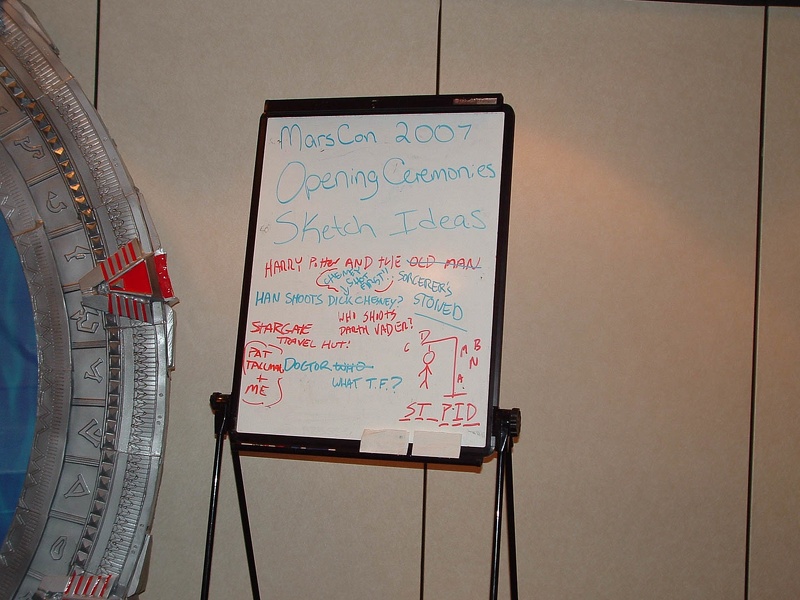 MarsCon 2007
Opening Ceremonies
Sketch Ideas
HARRY Potter AND THE OLD MAN!
SORCERER'S
STONED
CHENEY
SHOT
FIRST!!
HAN SHOOTS DICK CHENEY?
WHO SHOOTS
DARTH VADER?
STARGATE
TRAVEL HUT!
PAT
TALLMAN
+
ME
DOCTOR WHO
WHAT T.F.?
C D M B
N
A
ST P I D